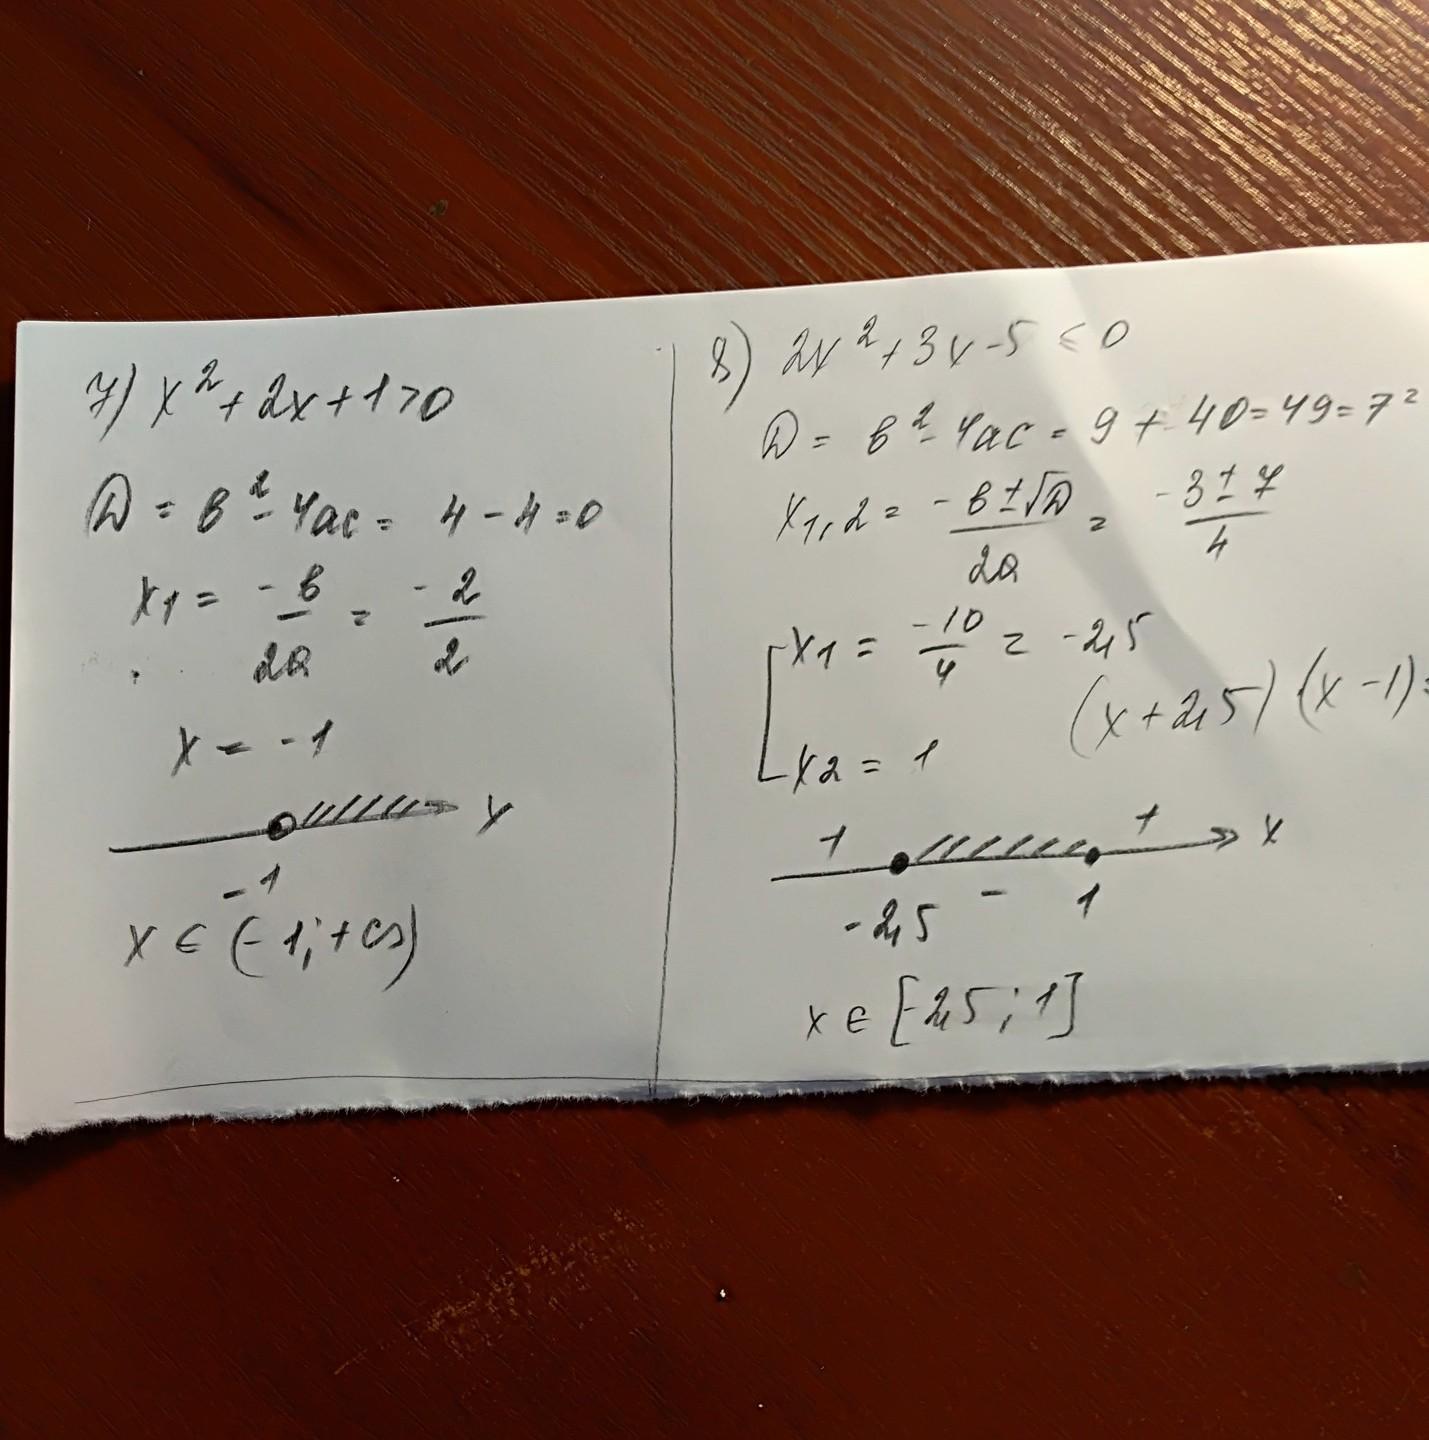 7) x² + 2x + 1 > 0
D = b² - 4ac = 4 - 4 = 0
x₁ = -b/2a = -2/2
x = -1
x
-1
x ∈ (-1; +∞)
8) 2x² + 3x - 5 ≤ 0
D = b² - 4ac = 9 + 40 = 49 = 7²
x₁,₂ = (-b ± √D)/2a = (-3 ± 7)/4
[x₁ = -10/4 = -2,5
(x + 2,5)(x - 1) =
x₂ = 1
+ + x
-2,5 - 1
x ∈ [-2,5; 1]